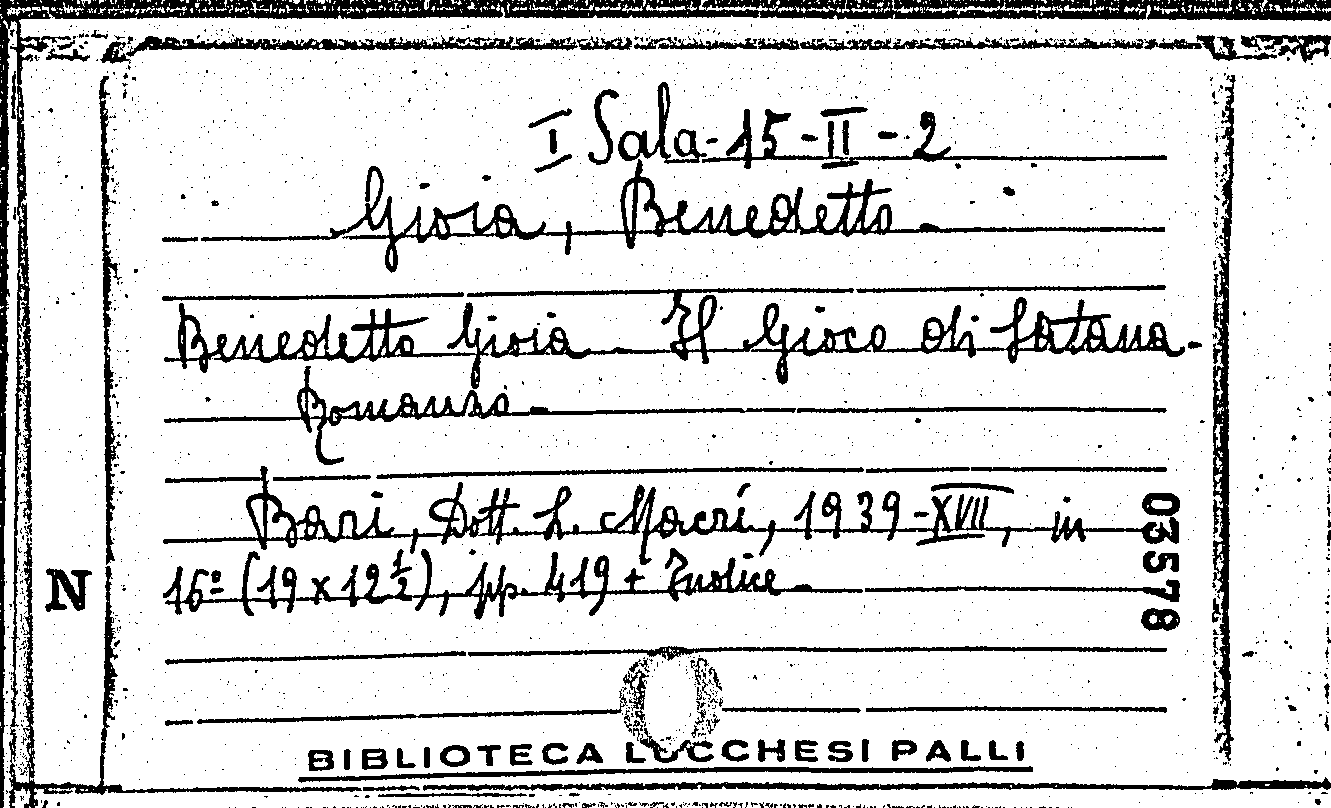 I Sala-15-II-2
Gioia, Benedetto -
Benedetto Gioia - Il Gioco di Satana -
Romanzo -
Bari, Dott. L. Macrí, 1939-XVII, in
16º (19 x 12 ½), pp. 419 + Indice -
03578
N
BIBLIOTECA LUCCHESI PALLI